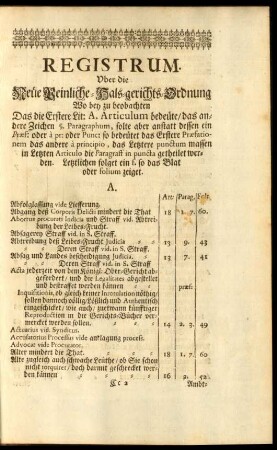 REGISTRUM.
Uber die
Neue Peinliche-Hals-gerichts-Ordnung
Wo bey zu beobachten
Das die Erstere Lit: A. Articulum bedeüte/das an-
dere Zeichen §. Paragraphum, solte aber anstatt dessen ein
Præf: oder à pr: oder Punct so bedeütet das Erstere Præfatio-
nem das andere à principio, das Letztere punctum massen
in Letzten Articulo die Paragraff in puncta zertheilet wer-
den. Letzlichen folget ein f. so das Blat
oder folium zeiget.
A.
Art: Parag. Folt.
Abfolglassung vide Liefferung.
Abgang des Corporis Delicti mindert die That 18 1. 7. 60.
Abortus procurati Indicia und Straff vid. Abtrei-
bung der Leibes-Frucht.
Absagerey Straff vid. in S. Straff.
Abtreibung des Leibes-Frucht Judicia 13 9. 43
Deren Straff vid. in S. Straff.
Absag und Landes bescheidigung Judicia. 13 7. 41
Deren Straff vid. in S. Straff
Acta jederzeit von dem Königl. Ober-Gericht ab-
gefordert/ und der Legalitaet abgestellet
und bestraffet werden können præf:
Inquisitionis, ob gleich keiner Revelation nöthig/
sollen dannoch völlig Leßlich und Authentisch
eingeschicket/ wie auch/ zuetwann künfftiger
Reproduction in die Gerichts-Bücher ver-
mercket werden sollen. 14 2. 3. 49
Actuarius vid. Syndicus.
Accusatorius Processus vide anklagung process.
Advocat vide Procurator.
Alter mindert die That. 18 1. 7. 60
Alte zugleich auch schwache Leüthe/ ob Sie schon
nicht torquiret/ doch darmit geschrecket wer-
den können 16 9. 52
Cc 2 Ambt-